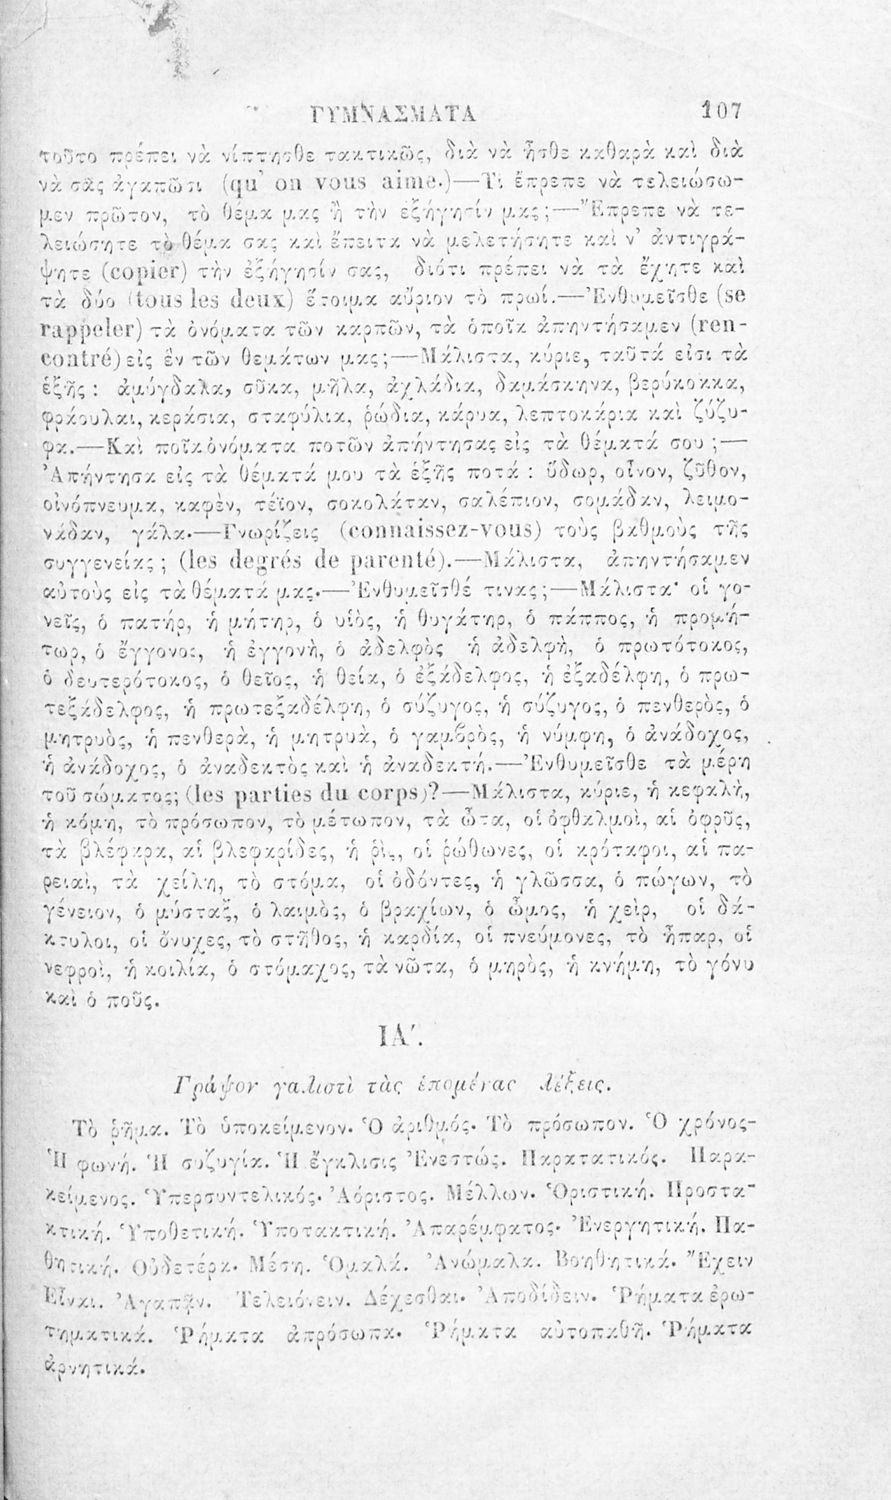 ΓΥΜΝΑΣΜΑΤΑ 107
τοῦτο πρέπει νὰ νίπτησθε τακτικῶς, διὰ νὰ ἦσθε καθαρὰ καὶ διὰ
νὰ σᾶς ἀγαπῶσι (qu' on vous aime.)—Τί ἔπρεπε νὰ τελειώσω-
μεν πρῶτον, τὸ θέμα μας ἢ τὴν ἐξήγησίν μας;—Ἔπρεπε νὰ τε-
λειώσητε τὸ θέμα σας καὶ ἔπειτα νὰ μελετήσητε καὶ ν' ἀντιγρά-
ψητε (copier) τὴν ἐξήγησίν σας, διότι πρέπει νὰ τὰ ἔχητε καὶ
τὰ δύο (tous les deux) ἕτοιμα αὔριον τὸ πρωί.—Ἐνθυμεῖσθε (se
rappeler) τὰ ὀνόματα τῶν καρπῶν, τὰ ὁποῖα ἀπηντήσαμεν (ren-
contré) εἰς ἓν τῶν θεμάτων μας;—Μάλιστα, κύριε, ταῦτά εἰσι τὰ
ἑξῆς : ἀμύγδαλα, σῦκα, μῆλα, ἀχλάδια, δαμάσκηνα, βερύκοκκα,
φράουλαι, κεράσια, σταφύλια, ῥώδια, κάρυα, λεπτοκάρια καὶ ζύζυ-
φα.—Καὶ ποῖα ὀνόματα ποτῶν ἀπήντησας εἰς τὰ θέματά σου ;—
Ἀπήντησα εἰς τὰ θέματά μου τὰ ἑξῆς ποτά : ὕδωρ, οἶνον, ζῦθον,
οἰνόπνευμα, καφὲν, τέϊον, σοκολάταν, σαλέπιον, σομάδαν, λειμο-
νάδαν, γάλα.—Γνωρίζεις (connaissez-vous) τοὺς βαθμοὺς τῆς
συγγενείας ; (les degrés de parenté).—Μάλιστα, ἀπηντήσαμεν
αὐτοὺς εἰς τὰ θέματά μας.—Ἐνθυμεῖσθέ τινας;—Μάλιστα· οἱ γο-
νεῖς, ὁ πατὴρ, ἡ μήτηρ, ὁ υἱὸς, ἡ θυγάτηρ, ὁ πάππος, ἡ προμή-
τωρ, ὁ ἔγγονος, ἡ ἐγγονὴ, ὁ ἀδελφὸς ἡ ἀδελφὴ, ὁ πρωτότοκος,
ὁ δευτερότοκος, ὁ θεῖος, ἡ θεία, ὁ ἐξάδελφος, ἡ ἐξαδέλφη, ὁ πρω-
τεξάδελφος, ἡ πρωτεξαδέλφη, ὁ σύζυγος, ἡ σύζυγος, ὁ πενθερὸς, ὁ
μητρυὸς, ἡ πενθερὰ, ἡ μητρυὰ, ὁ γαμβρὸς, ἡ νύμφη, ὁ ἀνάδοχος,
ἡ ἀνάδοχος, ὁ ἀναδεκτὸς καὶ ἡ ἀναδεκτή.—Ἐνθυμεῖσθε τὰ μέρη
τοῦ σώματος; (les parties du corps)?—Μάλιστα, κύριε, ἡ κεφαλὴ,
ἡ κόμη, τὸ πρόσωπον, τὸ μέτωπον, τὰ ὦτα, οἱ ὀφθαλμοὶ, αἱ ὀφρῦς,
τὰ βλέφαρα, αἱ βλεφαρίδες, ἡ ῥὶς, οἱ ῥώθωνες, οἱ κρόταφοι, αἱ πα-
ρειαὶ, τὰ χείλη, τὸ στόμα, οἱ ὀδόντες, ἡ γλῶσσα, ὁ πώγων, τὸ
γένειον, ὁ μύσταξ, ὁ λαιμὸς, ὁ βραχίων, ὁ ὦμος, ἡ χεὶρ, οἱ δά-
κτυλοι, οἱ ὄνυχες, τὸ στῆθος, ἡ καρδία, οἱ πνεύμονες, τὸ ἧπαρ, οἱ
νεφροὶ, ἡ κοιλία, ὁ στόμαχος, τὰ νῶτα, ὁ μηρὸς, ἡ κνήμη, τὸ γόνυ
καὶ ὁ ποῦς.
ΙΑ΄.
Γράψον γαλιστὶ τὰς ἑπομένας λέξεις.
Τὸ ῥῆμα. Τὸ ὑποκείμενον. Ὁ ἀριθμός. Τὸ πρόσωπον. Ὁ χρόνος-
Ἡ φωνή. Ἡ συζυγία. Ἡ ἔγκλισις Ἐνεστώς. Παρατατικός. Παρα-
κείμενος. Ὑπερσυντελικός. Ἀόριστος. Μέλλων. Ὁριστική. Προστα-
κτική. Ὑποθετική. Ὑποτακτική. Ἀπαρέμφατος. Ἐνεργητική. Πα-
θητική. Οὐδετέρα. Μέση. Ὁμαλά. Ἀνώμαλα. Βοηθητικά. Ἔχειν
Εἶναι. Ἀγαπᾷν. Τελειόνειν. Δέχεσθαι. Ἀποδίδειν. Ῥήματα ἐρω-
τηματικά. Ῥήματα ἀπρόσωπα. Ῥήματα αὐτοπαθῆ. Ῥήματα
ἀρνητικά.